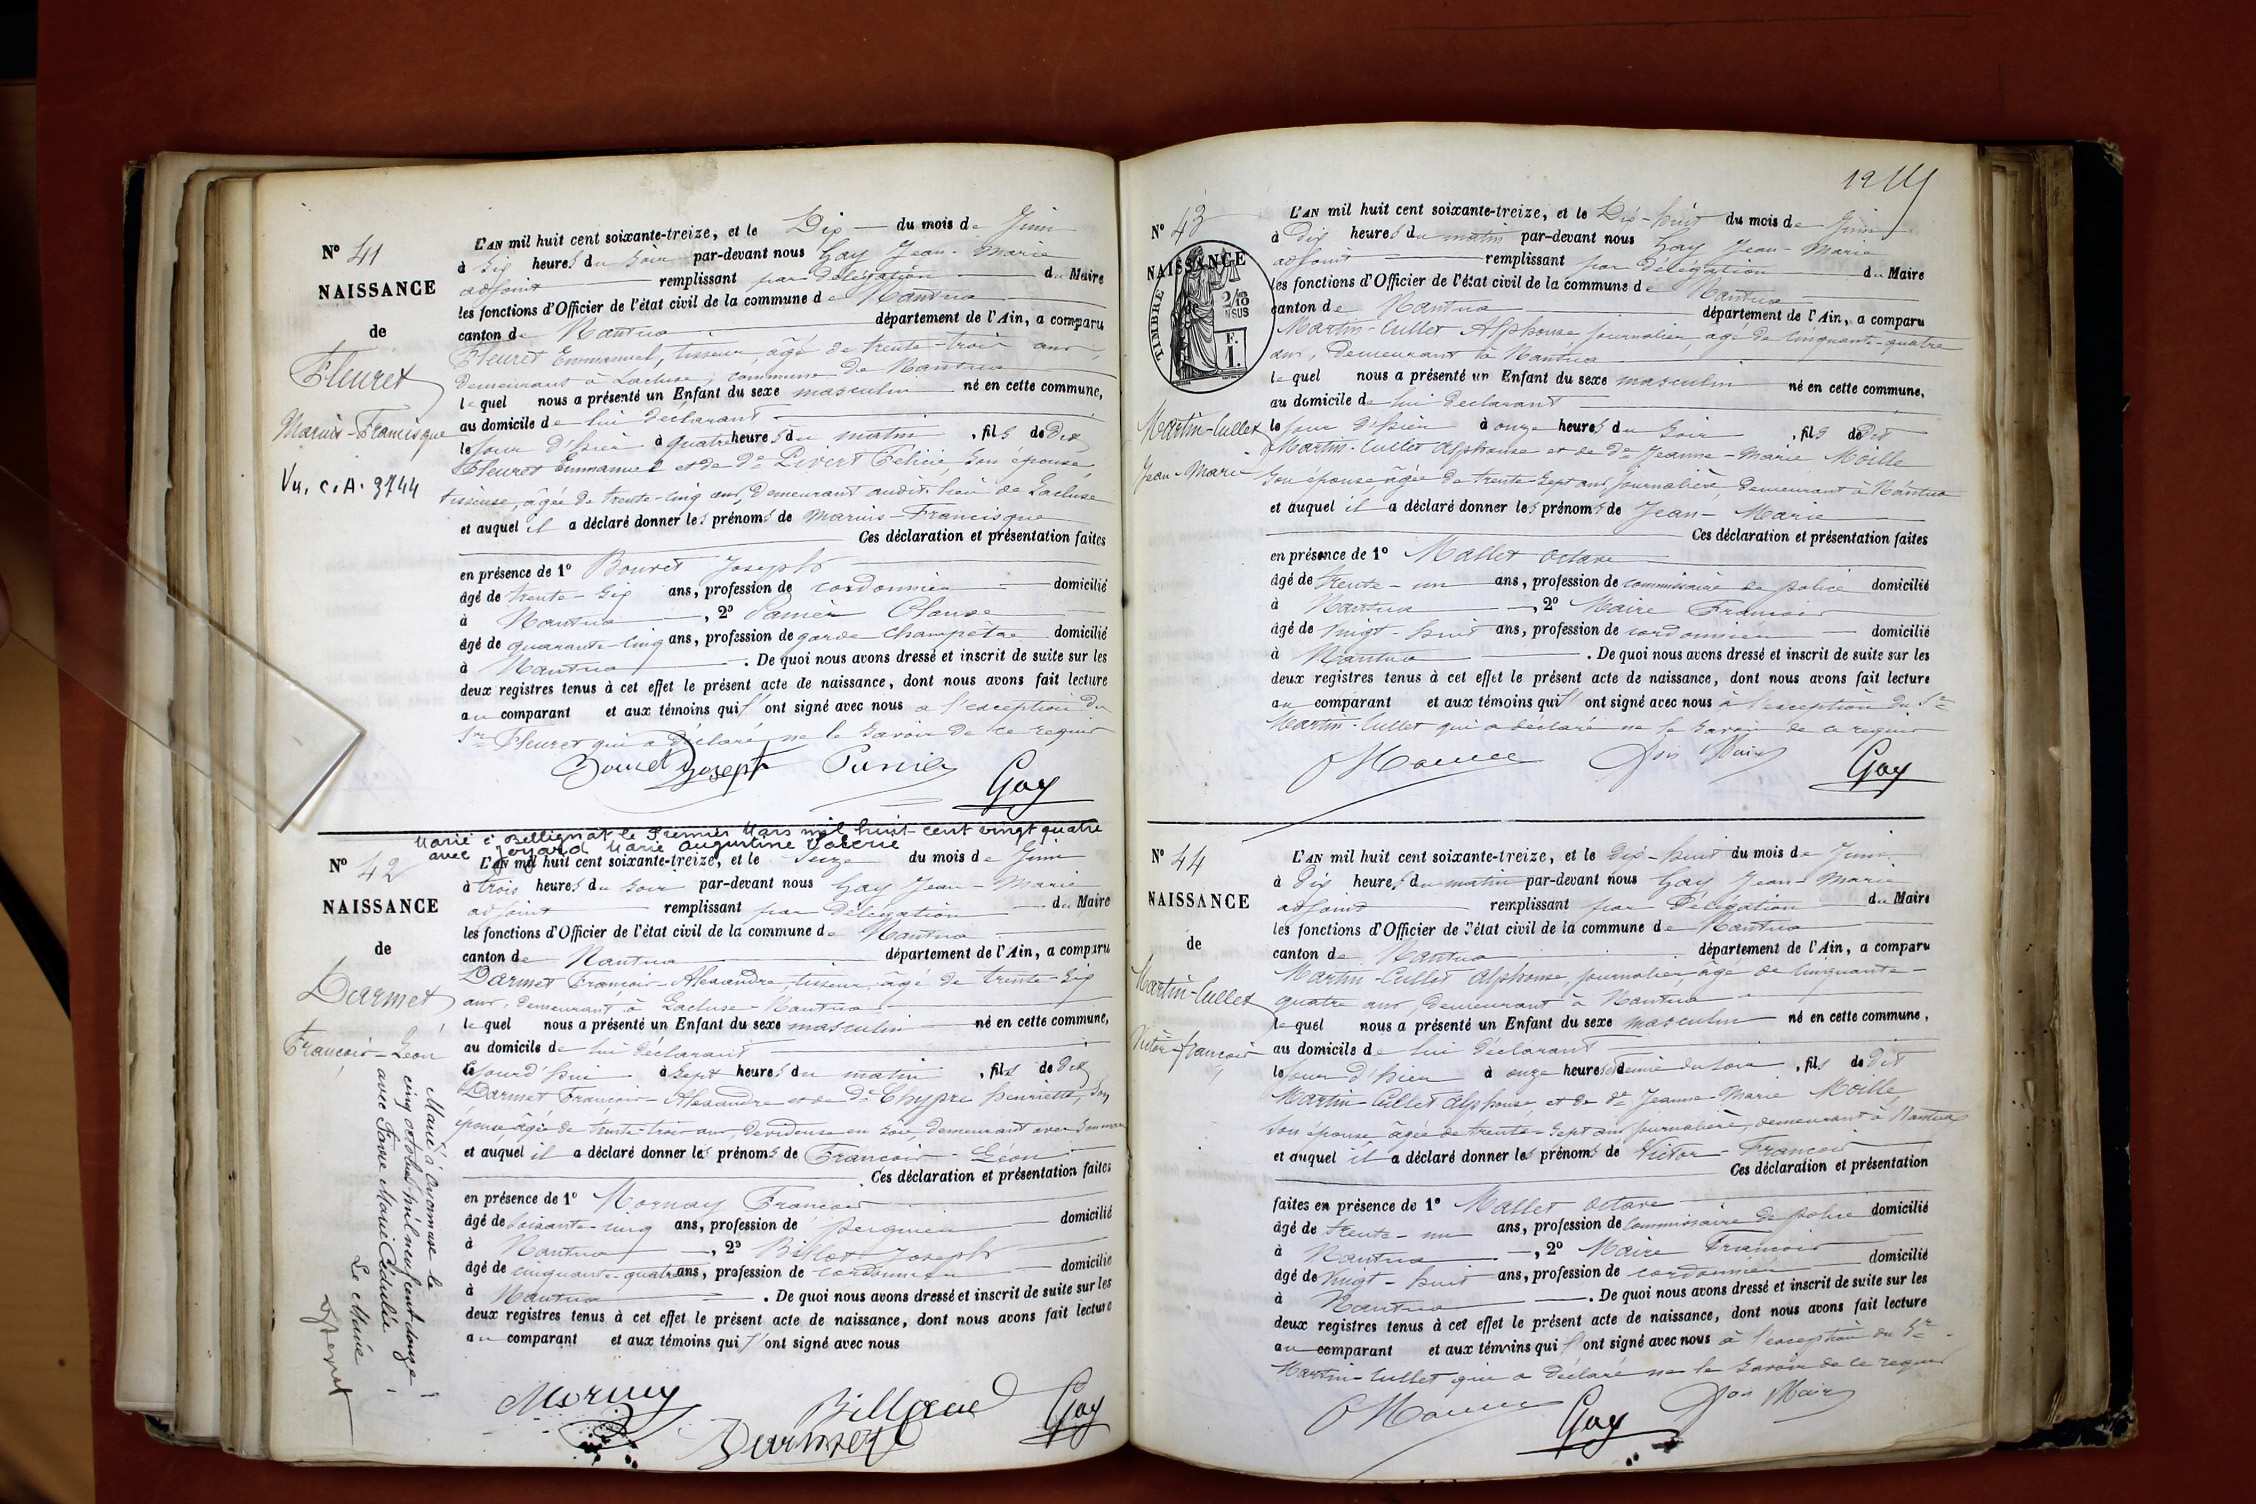 N° 41
NAISSANCE
de
Fleuret
Marius-Francisque
Vu. C.A. 3744
L'AN mil huit cent soixante-treize, et le Dix du mois de Juin
à Six heures du Soir par-devant nous Gay Jean-Marie
adjoint remplissant par délégation du Maire
les fonctions d'Officier de l'état civil de la commune de Nantua
canton de Nantua département de l'Ain, a comparu
Fleuret Emmanuel, tisseur, âgé de trente-trois ans,
demeurant à Lacluse, commune de Nantua
lequel nous a présenté un Enfant du sexe masculin né en cette commune,
au domicile de lui déclarant
le Jour d'hier à quatre heures du matin, fils de Dit
Fleuret Emmanuel et de De Livert Félicie, Son épouse,
tisseuse, âgée de trente-cinq ans, demeurant audit lieu de Lacluse
et auquel il a déclaré donner les prénoms de Marius-Francisque
Ces déclaration et présentation faites
en présence de 1° Bouvet Joseph
âgé de trente-six ans, profession de cordonnier domicilié
à Nantua, 2° Panier Claude
âgé de quarante-cinq ans, profession de garde champêtre domicilié
à Nantua. De quoi nous avons dressé et inscrit de suite sur les
deux registres tenus à cet effet le présent acte de naissance, dont nous avons fait lecture
au comparant et aux témoins qui l'ont signé avec nous à l'exception du
Sr Fleuret qui a déclaré ne le Savoir de ce requis
Bouvet Joseph Panier Gay
Marié à Bellignat le Premier Mars mil huit cent vingt quatre
avec Joyard Marie Augustine Valerie
N° 42
NAISSANCE
de
Darmet
François-Léon
Marié à Oyonnax le
cinq octobre mil neuf cent douze
avec Favre Marie
Le Maire
L'AN mil huit cent soixante-treize, et le Seize du mois de Juin
à trois heures du Soir par-devant nous Gay Jean-Marie
adjoint remplissant par délégation du Maire
les fonctions d'Officier de l'état civil de la commune de Nantua
canton de Nantua département de l'Ain, a comparu
Darmet François-Alexandre, tisseur, âgé de trente-six
ans, demeurant à Lacluse-Nantua
lequel nous a présenté un Enfant du sexe masculin né en cette commune,
au domicile de lui déclarant
le Jourd'hui à Sept heures du matin, fils de Dit
Darmet François-Alexandre et de De Chypre henriette, Son
épouse âgée de trente-trois ans, dévideuse en Soie demeurant avec Son mari
et auquel il a déclaré donner les prénoms de François-Léon
Ces déclaration et présentation faites
en présence de 1° Mornay François
âgé de Soixante-cinq ans, profession de domicilié
à Nantua, 2° Joseph
âgé de cinquante-quatre ans, profession de cordonnier domicilié
à Nantua. De quoi nous avons dressé et inscrit de suite sur les
deux registres tenus à cet effet le présent acte de naissance, dont nous avons fait lecture
au comparant et aux témoins qui l'ont signé avec nous
Mornay Darmet Gay
12
N° 43
NAISSANCE
TIMBRE
2/10 EN SUS
F. 1.
Martin-Cullet
Jean-Marie
L'AN mil huit cent soixante-treize, et le Dix-huit du mois de Juin
à Dix heures du matin par-devant nous Gay Jean-Marie
adjoint remplissant par délégation du Maire
les fonctions d'Officier de l'état civil de la commune de Nantua
canton de Nantua département de l'Ain, a comparu
Martin-Cullet Alphonse, journalier, âgé de Cinquante-quatre
ans, Demeurant à Nantua
lequel nous a présenté un Enfant du sexe masculin né en cette commune,
au domicile de lui déclarant
le Jour d'hier à onze heures du Soir, fils de Dit
Martin-Cullet Alphonse et de De Jeanne-Marie Moille
Son épouse âgée de trente-Sept ans, Journalière, demeurant à Nantua
et auquel il a déclaré donner les prénoms de Jean-Marie
Ces déclaration et présentation faites
en présence de 1° Mallet Octave
âgé de trente-un ans, profession de commissaire de police domicilié
à Nantua, 2° Maire François
âgé de Vingt-huit ans, profession de cordonnier domicilié
à Nantua. De quoi nous avons dressé et inscrit de suite sur les
deux registres tenus à cet effet le présent acte de naissance, dont nous avons fait lecture
au comparant et aux témoins qui l'ont signé avec nous à l'exception du Sr
Martin-Cullet qui a déclaré ne le Savoir de ce requis
Maire Gay
N° 44
NAISSANCE
de
Martin-Cullet
Victor-François
L'AN mil huit cent soixante-treize, et le Dix-huit du mois de Juin
à Dix heures du matin par-devant nous Gay Jean-Marie
adjoint remplissant par Délégation du Maire
les fonctions d'Officier de l'état civil de la commune de Nantua
canton de Nantua département de l'Ain, a comparu
Martin-Cullet Alphonse, journalier, âgé de Cinquante-
quatre ans, demeurant à Nantua
lequel nous a présenté un Enfant du sexe masculin né en cette commune,
au domicile de lui déclarant
le Jour d'hier à onze heures et demie du soir, fils de Dit
Martin-Cullet Alphonse et de De Jeanne-Marie Moille,
Son épouse âgée de trente-Sept ans Journalière, demeurant à Nantua
et auquel il a déclaré donner les prénoms de Victor-François
Ces déclaration et présentation
faites en présence de 1° Mallet Octave
âgé de trente-un ans, profession de commissaire de police domicilié
à Nantua, 2° Maire François
âgé de Vingt-huit ans, profession de cordonnier domicilié
à Nantua. De quoi nous avons dressé et inscrit de suite sur les
deux registres tenus à cet effet le présent acte de naissance, dont nous avons fait lecture
au comparant et aux témoins qui l'ont signé avec nous à l'exception du Sr
Martin-Cullet qui a déclaré ne le Savoir de ce requis
Gay Maire